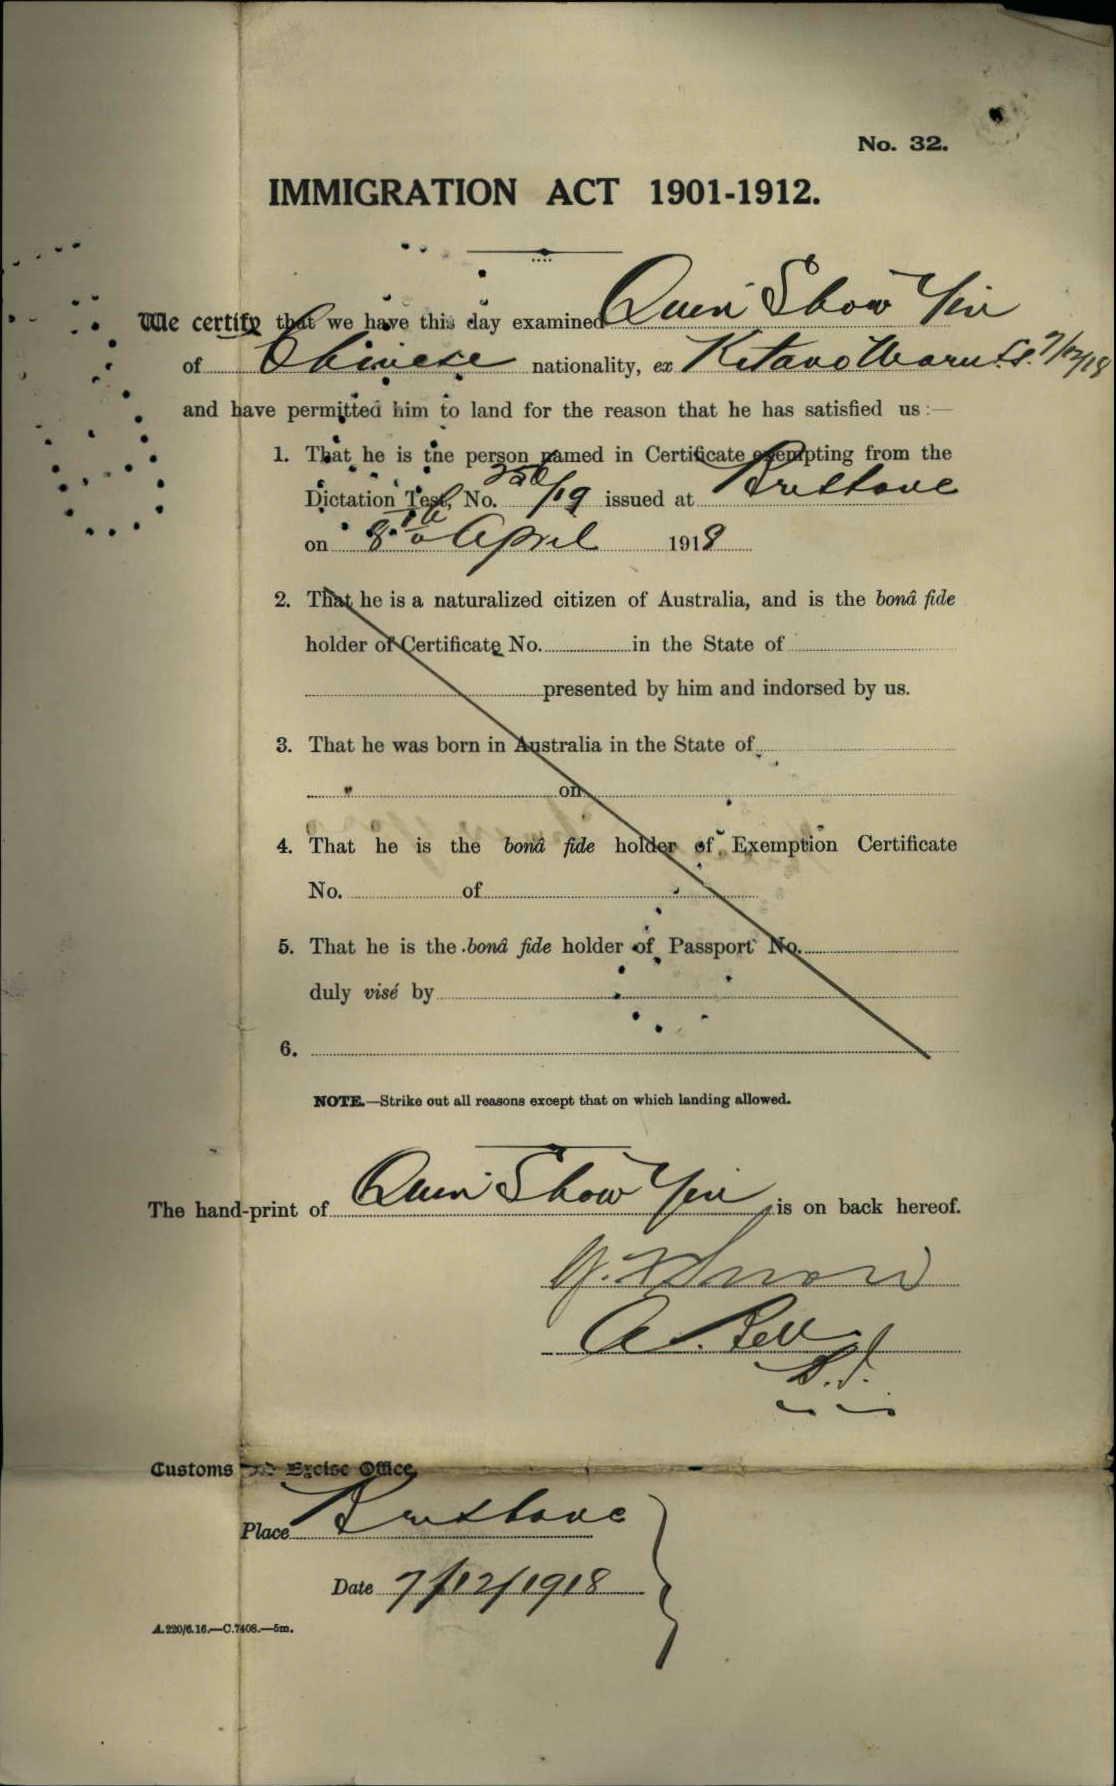 No. 32.
IMMIGRATION ACT 1901-1912.
We certify that we have this day examined Quin Show Yin
of Chinese nationality, ex Kitano Maru s.s. 7/12/18
and have permitted him to land for the reason that he has satisfied us:—
1. That he is the person named in Certificate exempting from the
Dictation Test, No. /19 issued at Brisbane
on 8th April 1918
2. That he is a naturalized citizen of Australia, and is the bonâ fide
holder of Certificate No. in the State of
presented by him and indorsed by us.
3. That he was born in Australia in the State of
on
4. That he is the bonâ fide holder of Exemption Certificate
No. of
5. That he is the bonâ fide holder of Passport No.
duly visé by
6.
NOTE.—Strike out all reasons except that on which landing allowed.
The hand-print of Quin Show Yin is on back hereof.
A. Bell
Customs Excise Office,
Place Brisbane
Date 7/12/1918
A.220/6.16.—C.7408.—5m.